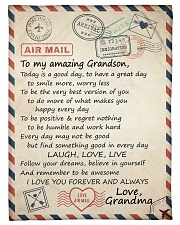 AIR MAIL
ARRIVAL
IMMIGRATION
To my amazing Grandson,
Today is a good day, to have a great day
to smile more, worry less
To be the very best version of you
to do more of what makes you
happy every day
To be positive & regret nothing
to be humble and work hard
Every day may not be good
but find something good in every day
LAUGH, LOVE, LIVE
Follow your dreams, believe in yourself
And remember to be awesome
I LOVE YOU FOREVER AND ALWAYS
Love,
Grandma
LOVE
AIR MAIL